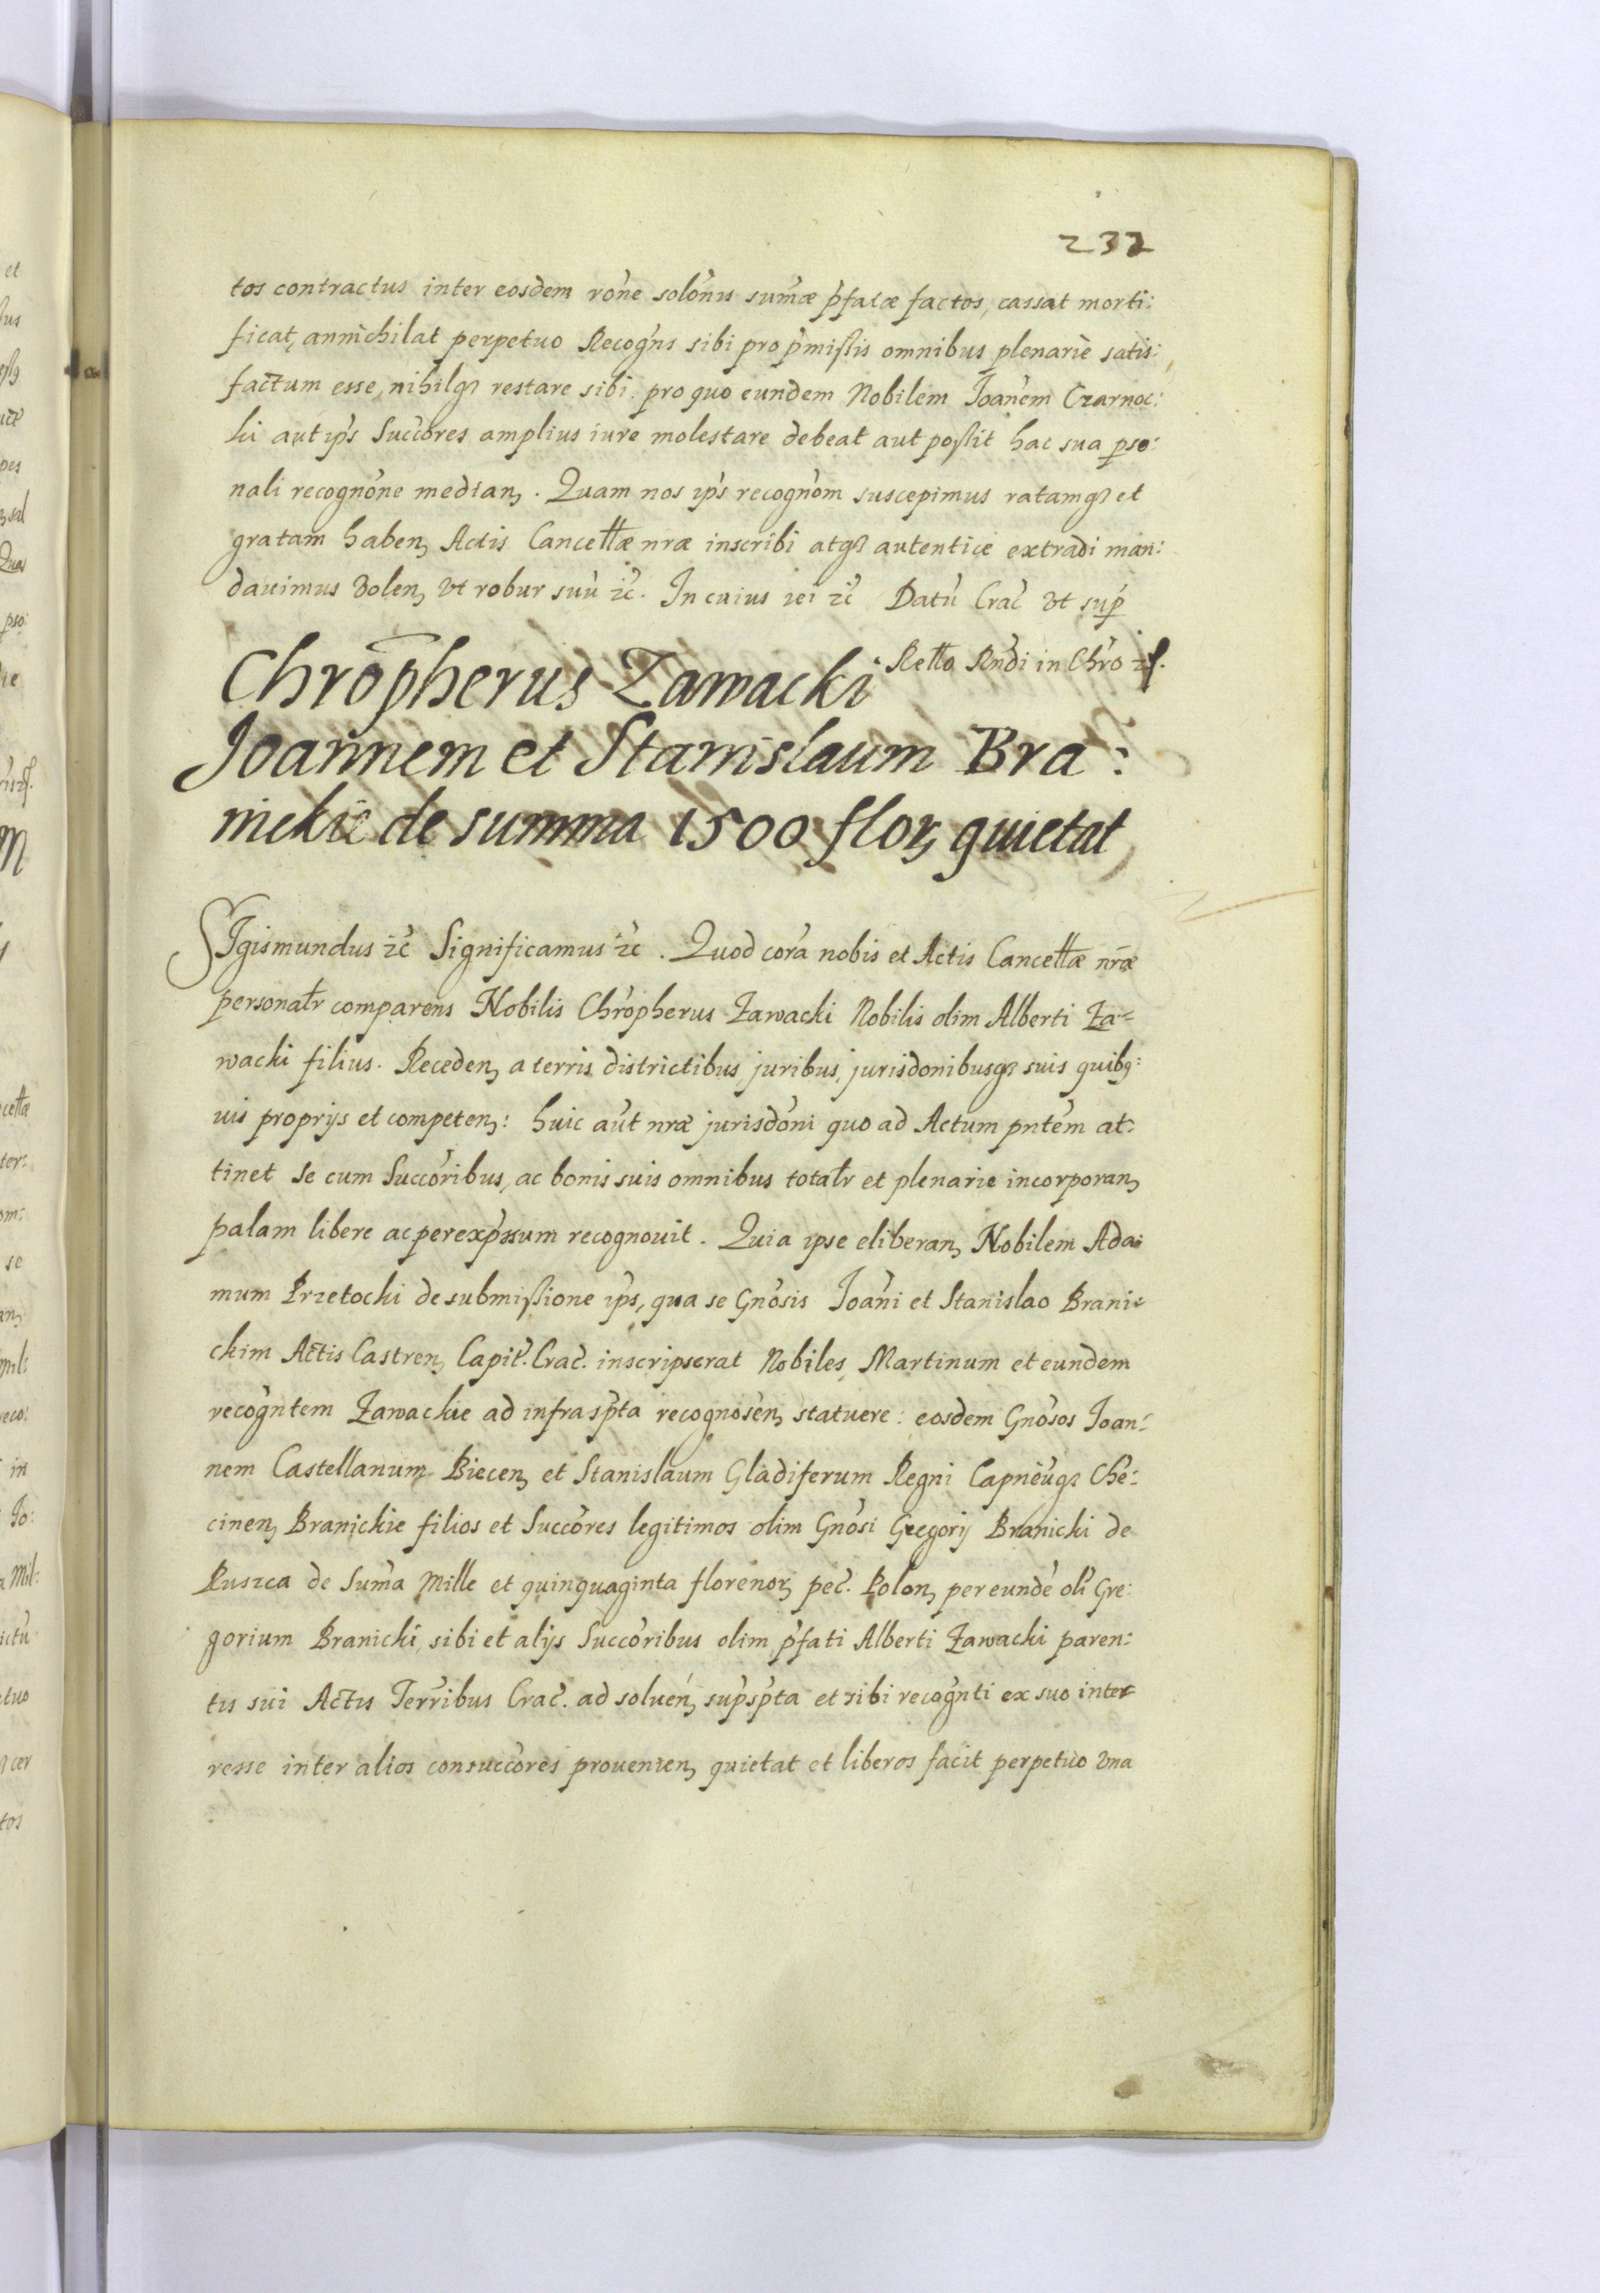 232
tos contractus inter eosdem rõne solõnis sum̃æ p̃fatæ factos, cassat morti:
ficat, annichilat perpetuo Recogñs sibi pro p̃mißis omnibus plenarie satis:
factum esse, nihilqȝ restare sibi. pro quo eundem Nobilem Joañem Czarnoc:
ki aut ip̃s Succ̃ores amplius iure molestare debeat aut poßit hac sua p̱so:
nali recognõne medianȝ. Quam nos ip̃s recognõm suscepimus ratamqȝ et
gratam habenȝ Actis Cancellæ nr̃æ inscribi atqȝ autentice extradi man:
dauimus Volenȝ vt robur suũ &c̃. In cuius rei &c̃ Datũ Crac̃ vt sup̃
Rello Rñdi in Chr̃o
Chrõpherus Zawacki
Joannem et Stanislaum Bra:
nickie de summa 1500 florȝ quietat
SIgismundus &c̃ Significamus &c. Quod corã nobis et Actis Cancellæ nr̃æ
personalr̃ comparens Nobilis Chrõpherus Zawacki Nobilis olim Alberti Za=
wacki filius. Recedenȝ a terris districtibus, juribus, jurisdonibusqȝ suis quibꝯ:
uis proprijs et competenȝ: huic aũt nræ jurisdõni quo ad Actum pñtem at:
tinet se cum Succ̃oribus, ac bonis suis omnibus totalr̃ et plenarie incorporanȝ
palam libere ac per exp̃ssum recognouit. Quia ipse eliberanȝ Nobilem Ada:
mum Przetocki de submißione ip̃s, qua se Gnõsis Joañi et Stanislao Brani:
ckim Actis Castrenȝ Capit̃. Crac̃. inscripserat Nobiles, Martinum et eundem
recogñtem Zawackie ad infrasp̃ta recognosenȝ statuere: eosdem Gnõsos Joan:
nem Castellanum Biecenȝ et Stanislaum Gladiferum Regni Capneũqȝ Chẽ:
cinenȝ Branickie filios et Succ̃ores legitimos olim Gnõsi Gregorij Branicki de
Ruszca de Sum̃a Mille et quinquaginta florenorȝ pec̃. Polonȝ per eundẽ oli̇̃ Gre:
gorium Branicki, sibi et alijs Succ̃oribus olim p̃fati Alberti Zawacki paren:
tis sui Actis Terr̃ibus Crac̃. ad soluenȝ sup̃sp̃ta et sibi recogñti ex suo inter
resse inter alios consuccores prouenienȝ quietat et liberos facit perpetuo vna